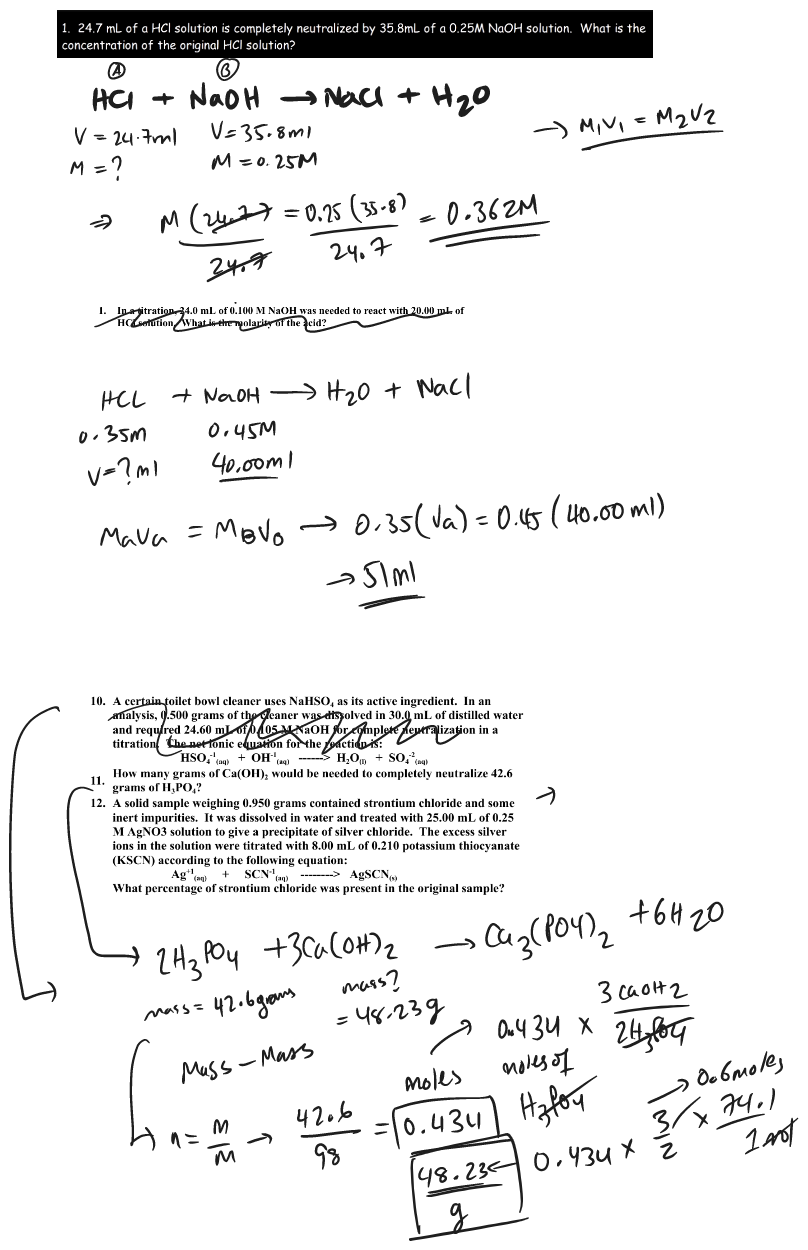 1. 24.7 mL of a HCl solution is completely neutralized by 35.8mL of a 0.25M NaOH solution. What is the
concentration of the original HCl solution?
A B
HCl + NaOH → NaCl + H2O
V = 24.7ml V=35.8ml → M1V1 = M2V2
M = ? M = 0.25M
⇒ M (24.7) = 0.25 (35.8) = 0.362M
24.7 24.7
1. In a titration, 34.0 mL of 0.100 M NaOH was needed to react with 20.00 mL of
HCl solution. What is the molarity of the acid?
HCL + NaOH → H2O + NaCl
0.35m 0.45M
V=? ml 40.00ml
MaVa = MBVb → 0.35(Va) = 0.45 (40.00 ml)
→ 51ml
10. A certain toilet bowl cleaner uses NaHSO4 as its active ingredient. In an
analysis, 0.500 grams of the cleaner was dissolved in 30.0 mL of distilled water
and required 24.60 mL of 0.105 M NaOH for complete neutralization in a
titration. The net ionic equation for the reaction is:
HSO4-1(aq) + OH-1(aq) ------> H2O(l) + SO4-2(aq)
11. How many grams of Ca(OH)2 would be needed to completely neutralize 42.6
grams of H3PO4?
12. A solid sample weighing 0.950 grams contained strontium chloride and some →
inert impurities. It was dissolved in water and treated with 25.00 mL of 0.25
M AgNO3 solution to give a precipitate of silver chloride. The excess silver
ions in the solution were titrated with 8.00 mL of 0.210 potassium thiocyanate
(KSCN) according to the following equation:
Ag+1(aq) + SCN-1(aq) --------> AgSCN(s)
What percentage of strontium chloride was present in the original sample?
→ 2H3PO4 + 3Ca(OH)2 → Ca3(PO4)2 + 6H2O
mass = 42.6grams mass?
= 48.23g
3 CaOH2
0.434 × 2H3PO4
Mass - Mass
moles moles of H3PO4
→ 0.6moles
n = M/M → 42.6/98 = 0.434
0.434 × 3/2 × 74.1/1 mol
48.23 ←
g